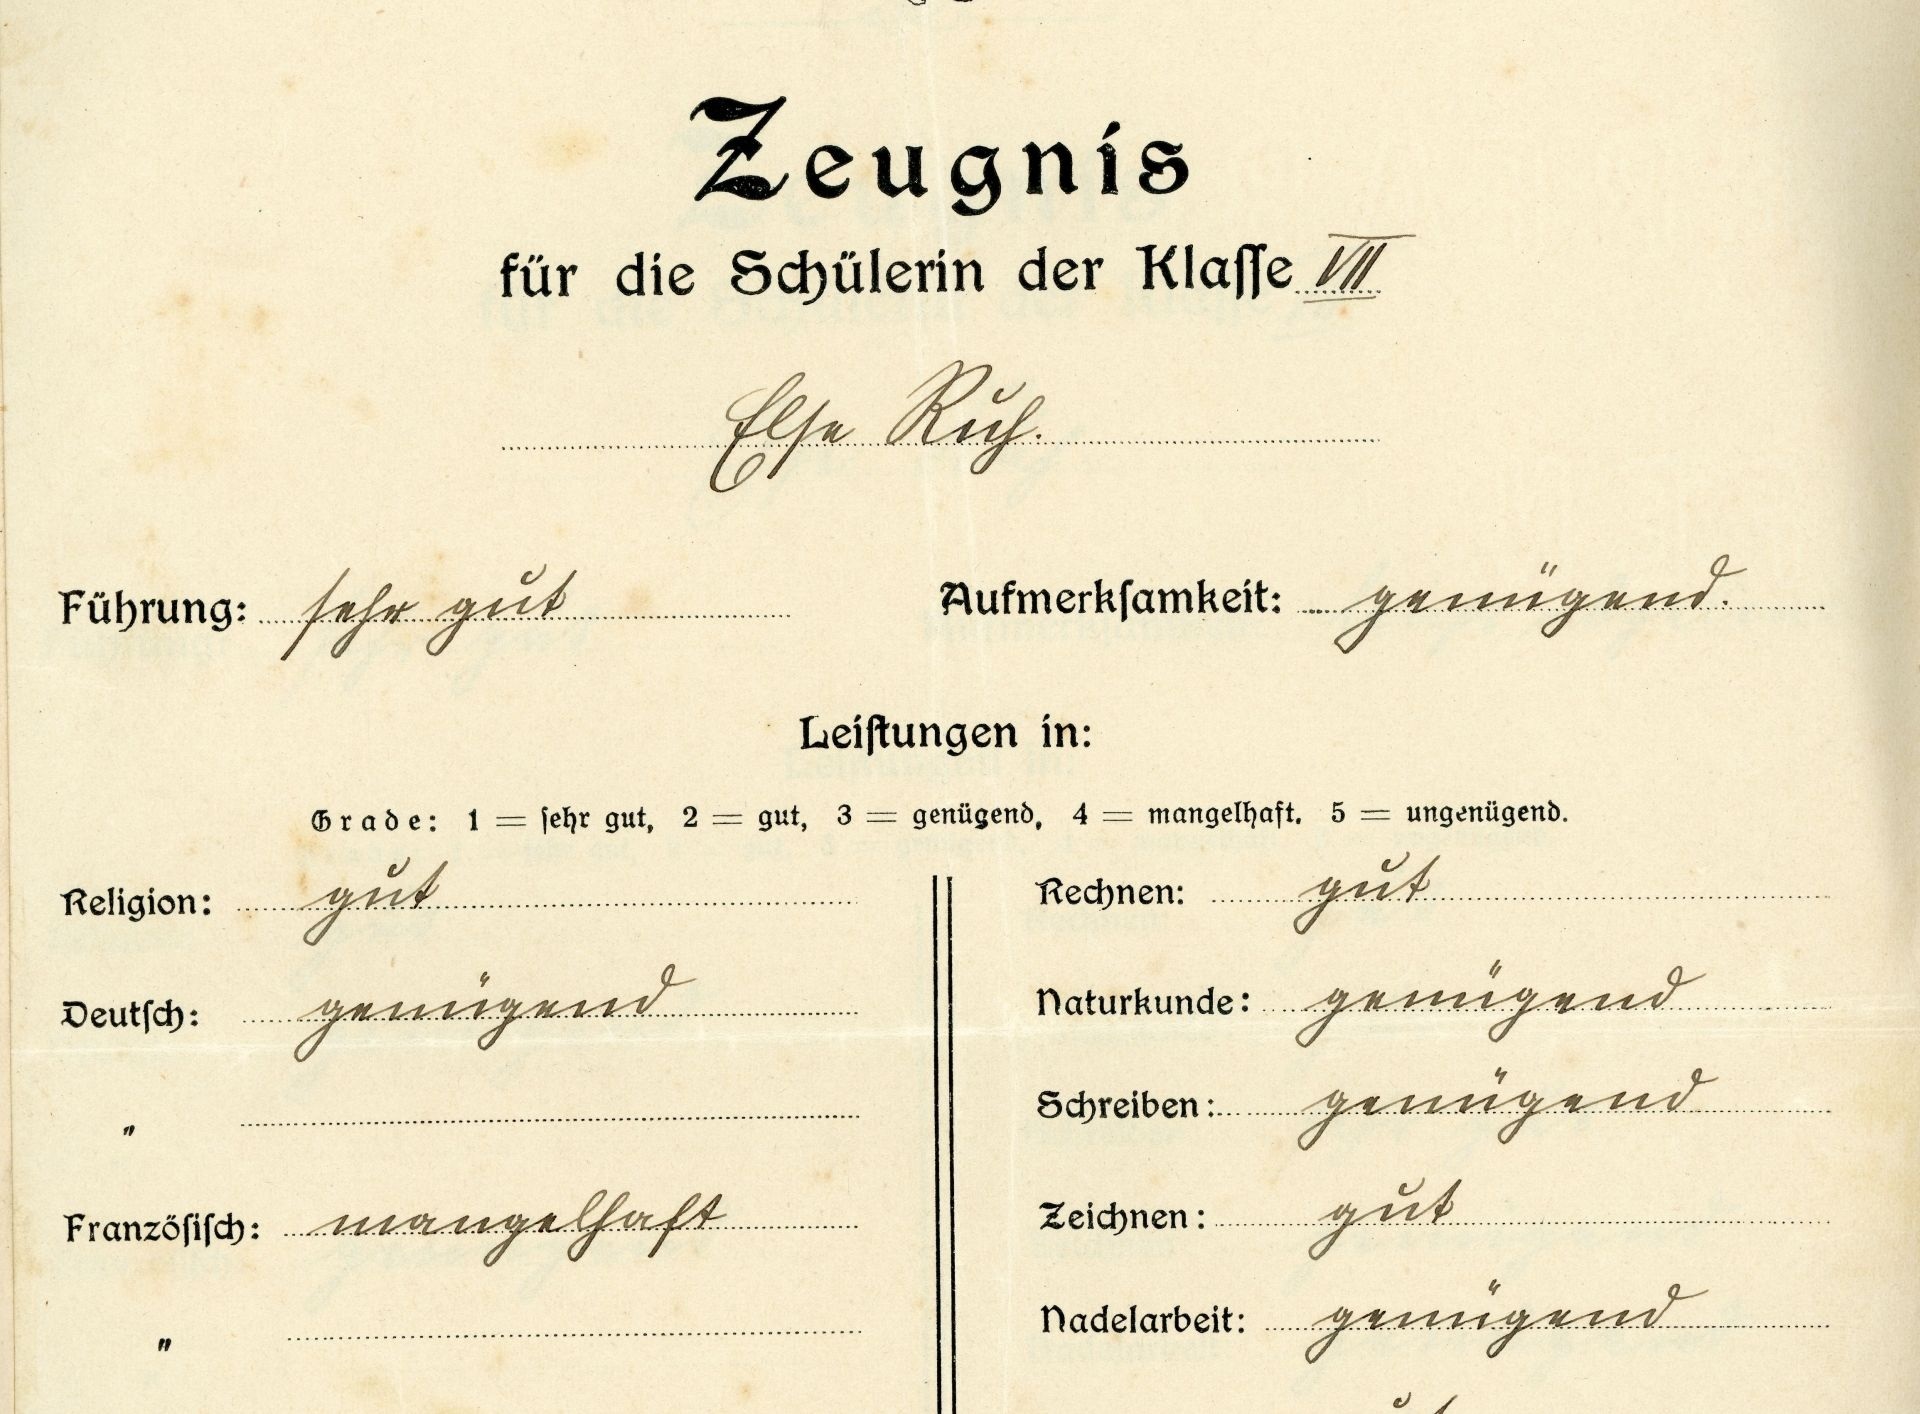 Zeugnis
für die Schülerin der Klaſſe VII
Else Ruh.
Führung: sehr gut
Aufmerkſamkeit: genügend.
Leiſtungen in:
Grade: 1 = ſehr gut, 2 = gut, 3 = genügend, 4 = mangelhaft. 5 = ungenügend.
Religion: gut
Deutſch: genügend
"
Franzöſiſch: mangelhaft
"
Rechnen: gut
Naturkunde: genügend
Schreiben: genügend
Zeichnen: gut
Nadelarbeit: genügend